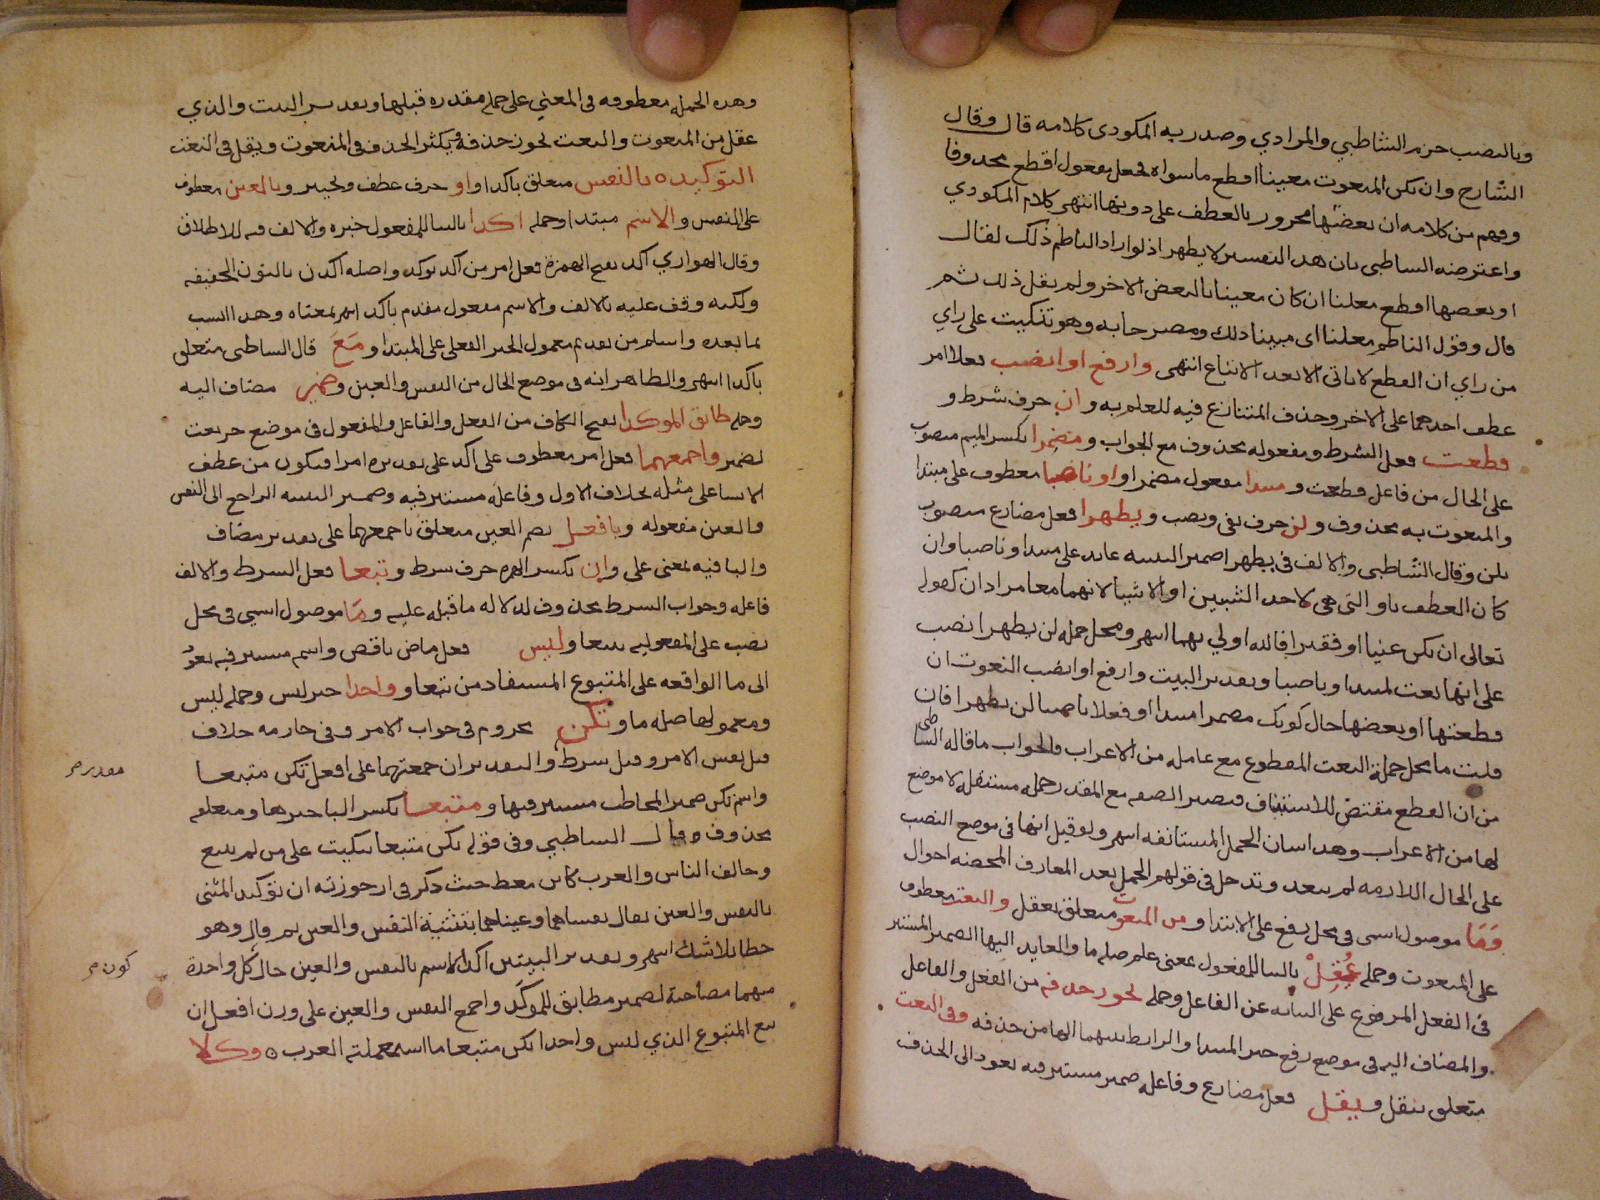 وبالنصب جزم الشاطبي والمرادي وصدر به المكودي كلامه قال وقال
الشارح وان يكن المنعوت معينا اقطع ما سواه فجعل مفعول اقطع محذوفا
وفهم من كلامه ان بعضها مجرور بالعطف على دونها انتهى كلام المكودي
واعترضه الشاطبي بان هذا التفسير لا يظهر اذ لو اراد الناظم ذلك لقال
او بعضها اقطع معلنا ان كان معينا بالبعض الاخر ولم يقل ذلك ثم
قال وقول الناظم معلنا اى مبينا ذلك ومصرحا به وهو تنكيت على راي
من راي ان القطع لا ياتى الا بعد الاتباع انتهى وارفع او انصب فعلا امر
عطف احدهما على الاخر وحذف المتنازع فيه للعلم به وان حرف شرط و
قطعت فعل الشرط ومفعوله محذوف مع الجواب ومضمرا بكسر الميم منصوب
على الحال من فاعل قطعت ومبتدا مفعول مضمرا او او ناصبا معطوف على مبتدا
والمنعوت به محذوف ولن حرف نفي ونصب ويظهرا فعل مضارع منصوب
بلن وقال الشاطبي والالف فى يظهرا ضمير التثنيه عايد على مبتدا وناصبا وان
كان العطف باو التى هى لاحد الشيئين او الاشيا لانهما معا مرادان كقوله
تعالى ان يكن غنيا او فقيرا فالله اولي بهما انتهى ومحل جمله لن يظهرا نصب
على انها نعت لمبتدا وناصبا وتقدير البيت وارفع او انصب النعوت ان
قطعتها او بعضها حال كونك مضمرا مبتدا او فعلا ناصبا لن يظهرا فان
قلت ما محل جملة النعت المقطوع مع عامله من الاعراب فالجواب ما قاله الشاطبي
من ان القطع مقتض للاستيناف فتصير الصفه مع المقدر جمله مستقله لا موضع
لها من الاعراب وهذا شان الجمل المستانفه انتهى ولو قيل انها فى موضع النصب
على الحال اللازمه لم يبعد وتدخل فى قولهم الجمل بعد المعارف المحضه احوال
وما موصول اسمي فى محل رفع على الابتدا ومن المنعوت متعلق بعقل والنعت معطوف
على المنعوت وجمله عُقِلْ بالبنا للمفعول بمعنى علم صله ما والعايد اليها الضمير المستتر
فى الفعل المرفوع على النيابه عن الفاعل وجمله يجوز حذفه من الفعل والفاعل
والمضاف اليه فى موضع رفع خبر المبتدا والرابط بينهما الها من حذفه وفى النعت
متعلق بيقل ويقل فعل مضارع وفاعله ضمير مستتر فيه يعود الى الحذف
وهذه الجمله معطوفه فى المعني على جمله مقدره قبلها وتقدير البيت والذي
عقل من المنعوت والنعت يجوز حذفه فيكثر الحذف فى المنعوت ويقل فى النعت
التوكيد ه بالنفس متعلق باكدا واو حرف عطف وتخيير وبالعين معطوف
على النفس والاسم مبتدا وجمله اكدا بالبنا للمفعول خبره والالف فيه للاطلاق
وقال الهواري اكد بفتح الهمزة فعل امر من اكد يوكد واصله اكدن بالنون الخفيفه
ولكنه وقف عليه بالالف والاسم مفعول مقدم باكد انتهى بمعناه وهذا انسب
بما بعده واسلم من تقديم معمول الخبر الفعلي على المبتدا ومَعَ قال الشاطبي متعلق
باكدا انتهى والظاهر انه فى موضع الحال من النفس والعين وضمير مضاف اليه
وجمله طابق الموكدا بفتح الكاف من الفعل والفاعل والمفعول فى موضع جر نعت
لضمير واجمعهما فعل امر معطوف على اكد على تقديره امرا فيكون من عطف
الانشا على مثله بخلاف الاول وفاعله مستتر فيه وضمير التثنيه الراجع الى النفس
والعين مفعوله وبافعل بضم العين متعلق باجمعهما على تقدير مضاف
والبا فيه بمعنى على وإن بكسر الهمزه حرف شرط وتبعا فعل الشرط والالف
فاعله وجواب الشرط محذوف لدلاله ما قبله عليه ومَا موصول اسمي فى محل
نصب على المفعوليه بتبعا وليس فعل ماض ناقص واسم مستتر فيه يعود
الى ما الواقعه على المتبوع المستفاد من تتبعا وواحدا خبر ليس وجمله ليس
ومعموليها صله ما وتكن مجزوم فى جواب الامر وفى جازمه خلاف
قيل نفس الامر وقيل شرط والتقدير ان جمعتهما على افعل تكن متبعا
واسم تكن ضمير المخاطب مستتر فيها ومتبعا بكسر البا خبرها ومتعلقه
محذوف ه قال الشاطبي وفى قوله تكن متبعا تنكيت على من لم يتبع
وخالف الناس والعرب كابن معط حيث ذكر فى ارجوزته ان توكيد المثنى
بالنفس والعين يقال نفساهما وعيناهما بتثنية النفس والعين ثم قال وهو
خطا بلا شك انتهى وتقدير البيتين اكد الاسم بالنفس والعين حال كل واحدة
منهما مصاحبة لضمير مطابق للموكَد واجمع النفس والعين على وزن افعل ان
تبع المتبوع الذي ليس واحدا تكن متبعا ما استعملته العرب ه وكلا
كون مر